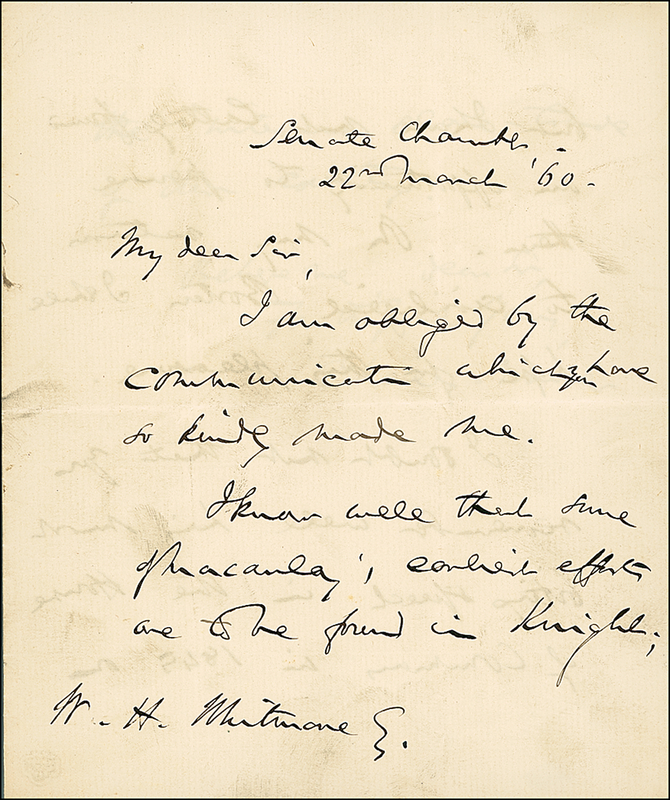 Senate Chamber.
22nd March '60.
My dear Sir,
I am obliged by the
communicatn which you have
so kindly made me.
I know well that some
of Macaulay's earliest efforts
are to be found in Knight;
W. H. Whitmore Esq.